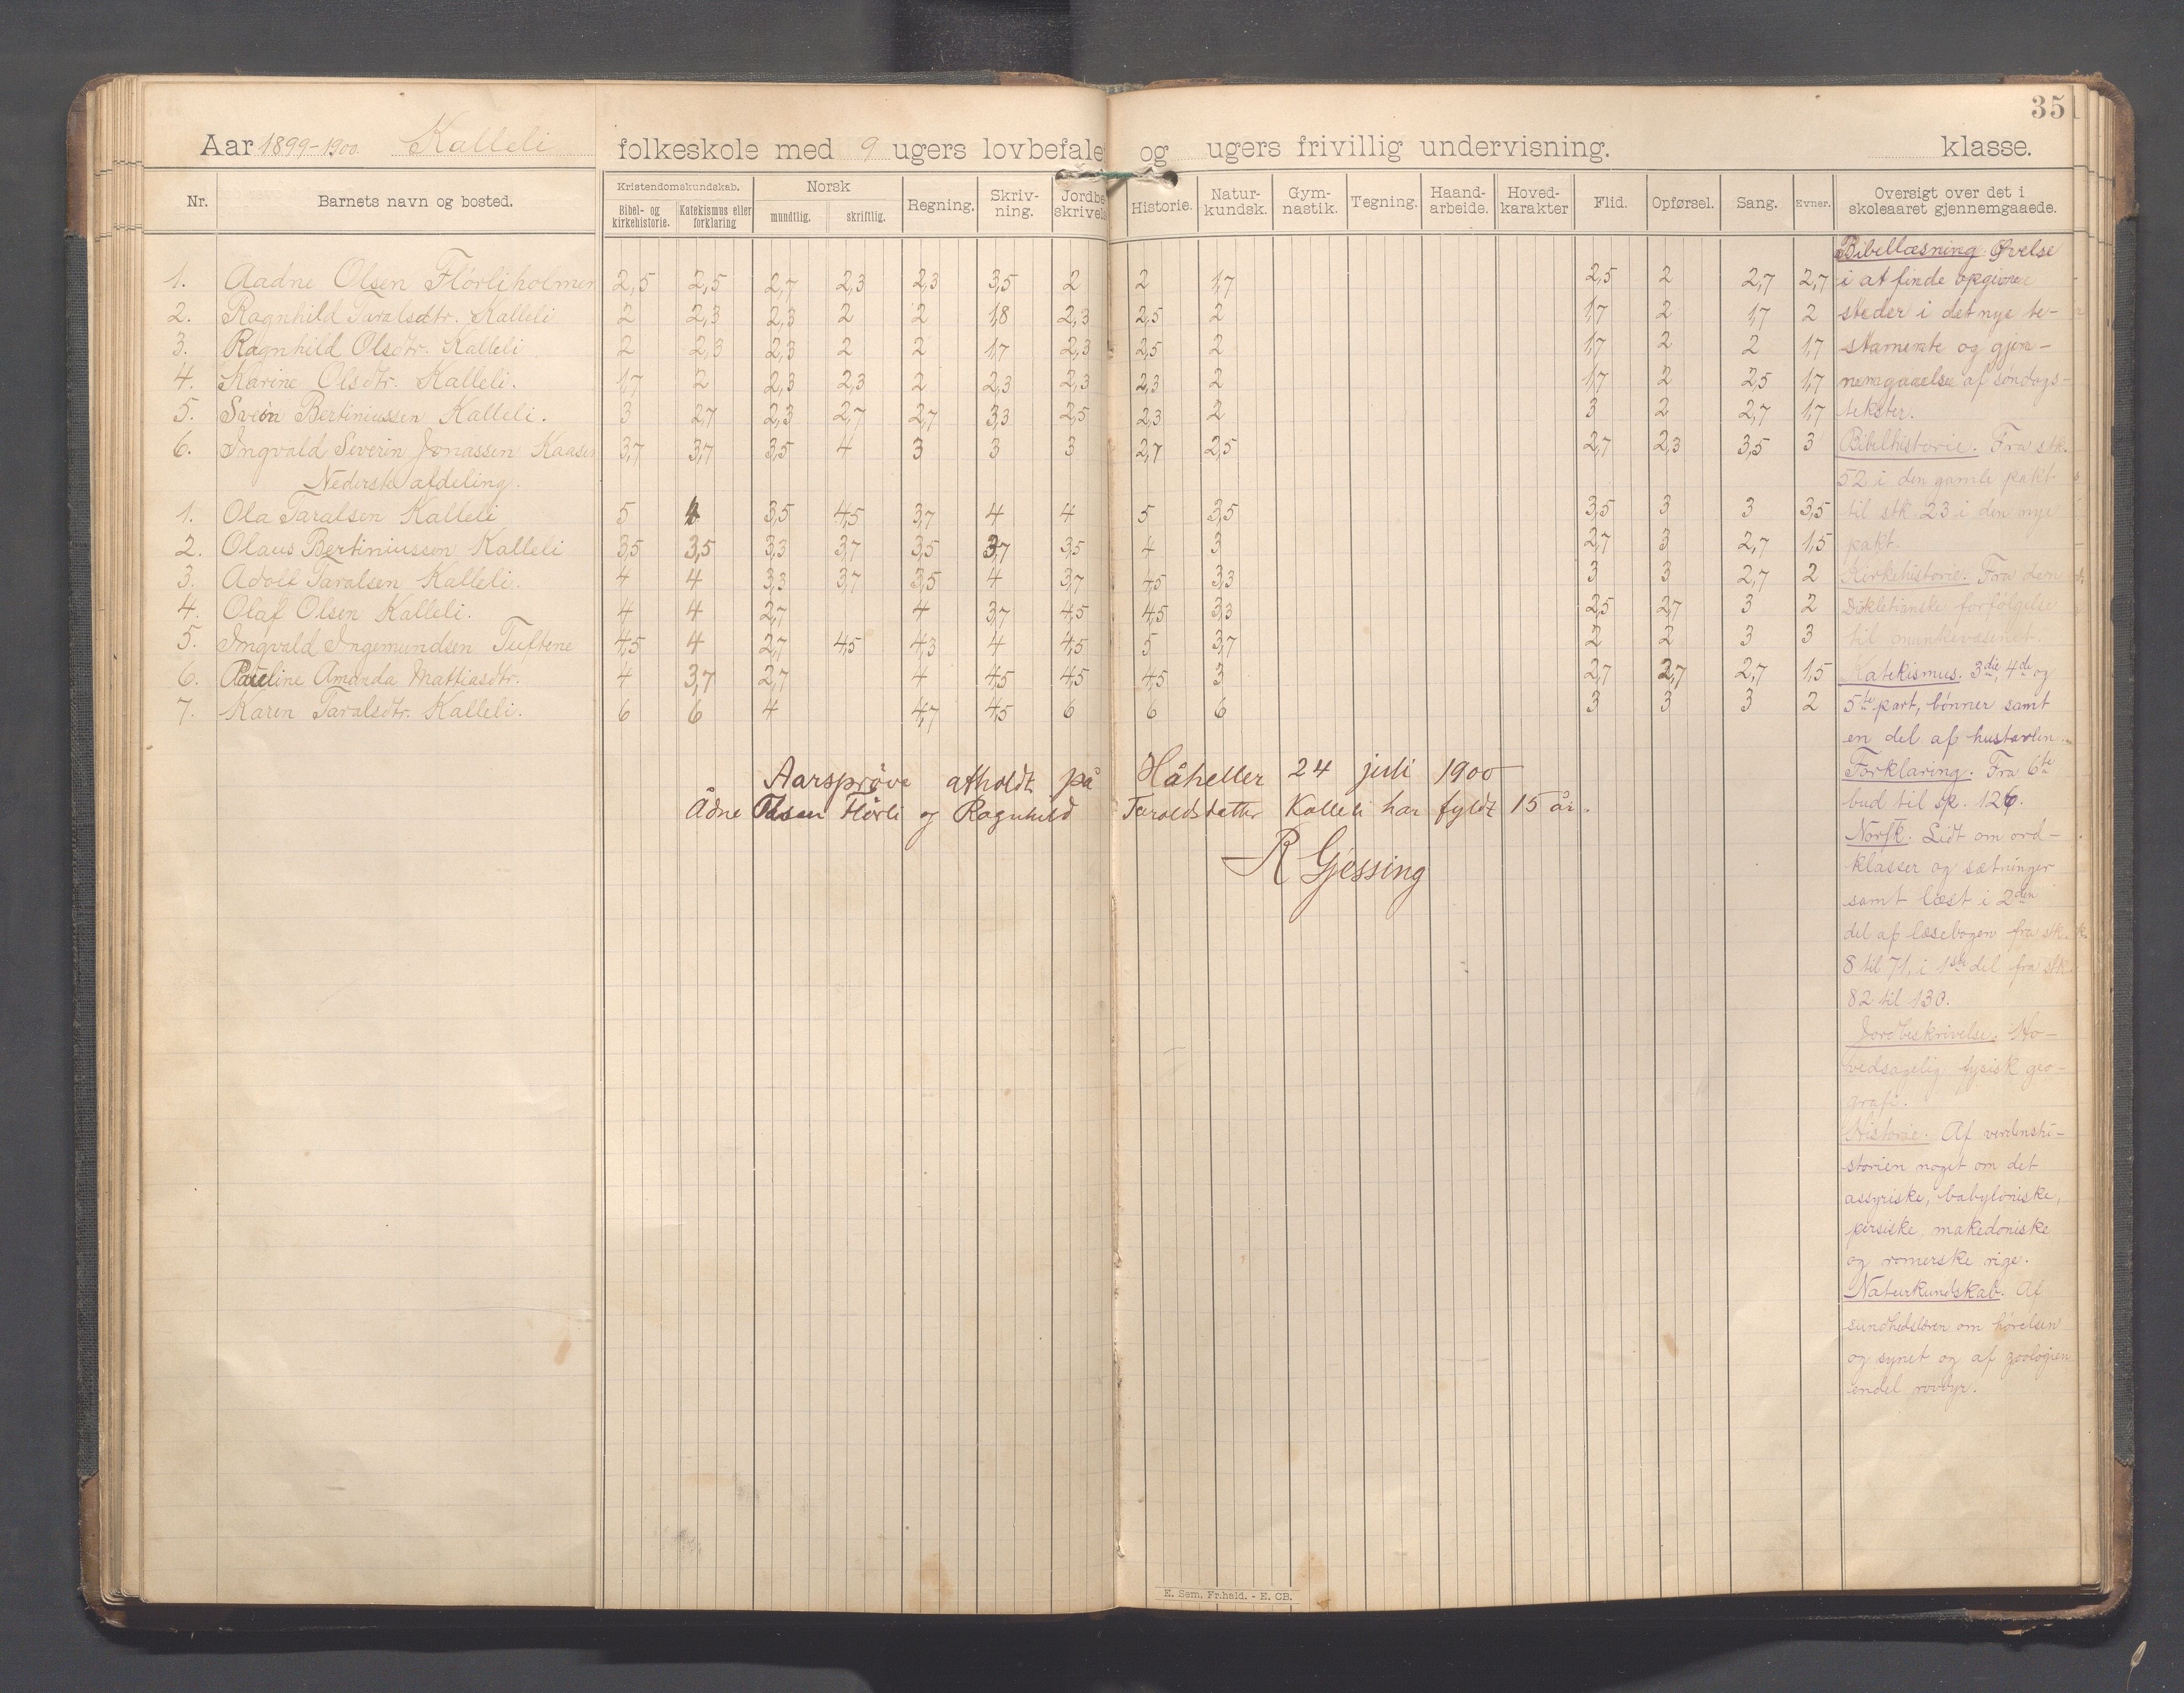 35
Aar 1899-1900. Kalleli folkeskole med 9 ugers lovbefale og ugers frivillig undervisning. klasse.
Nr. Barnets navn og bosted. Kristendomskundskab. Bibel- og kirkehistorie. Katekismus eller forklaring Norsk mundtlig. skriftlig. Regning. Skriv-ning. Jordbe skrivels Historie. Natur-kundsk. Gym-nastik. Tegning. Haand-arbeide. Hoved-karakter Flid. Opførsel. Sang. Evner. Oversigt over det i skoleaaret gjennemgaaede.
1. Aadne Olsen Flörliholmen 2,5 2,5 2,7 2,3 2,3 3,5 2 2 1,7 2,5 2 2,7 2,7
2. Ragnhild Taralsdtr. Kalleli 2 2,3 2,3 2 2 1,8 2,3 2,5 2 1,7 2 1,7 2
3. Ragnhild Olsdtr. Kalleli 2 2,3 2,3 2 2 1,7 2,3 2,5 2 1,7 2 2 1,7
4. Karine Olsdtr. Kalleli. 1,7 2 2,3 2,3 2 2,3 2,3 2,3 2 1,7 2 2,5 1,7
5. Svein Bertiniussen Kalleli. 3 2,7 2,3 2,7 2,7 3,3 2,5 2,3 2 3 2 2,7 1,7
6. Ingvald Severin Jonassen Kaasen 3,7 3,7 3,5 4 3 3 3 2,7 2,5 2,7 2,3 3,5 3
Nederste afdeling.
1. Ola Taralsen Kalleli 5 4 3,5 4,5 3,7 4 4 5 3,5 3,5 3 3 3,5
2. Olaus Bertiniussen Kalleli 3,5 3,5 3,3 3,7 3,5 3,7 3,5 4 3 2,7 3 2,7 1,5
3. Adolf Taralsen Kalleli. 4 4 3,3 3,7 3,5 4 3,7 4,5 3,3 3 3 2,7 2
4. Olaf Olsen Kalleli. 4 4 2,7 4 3,7 4,5 4,5 3,3 2,5 2,7 3 2
5. Ingvald Ingemundsen Tuftene 4,5 4 2,7 4,5 4,3 4 4,5 5 3,7 2 2 3 3
6. Pauline Amanda Mattiasdtr. 4 3,7 2,7 4 4,5 4,5 4,5 3 2,7 2,7 2,7 1,5
7. Karen Taralsdtr. Kalleli. 6 6 4 4,7 4,5 6 6 6 3 3 3 2
Aarspröve afholdt på Håheller 24 juli 1900
Ådne Olsen Flörli og Ragnhild Taraldsdatter Kalleli har fyldt 15 år.
R Gjessing
Bibellæsning. Øvelse
i at finde opgivne
steder i det nye te-
stamente og gjen-
nemgaaelse af søndags-
tekster.
Bibelhistorie. Fra stk.
52 i den gamle pakt
til stk. 23 i den nye
pakt.
Kirkehistorie. Fra den
Diokletianske forfølgelse
til munkevæsenet.
Katekismus. 3die, 4de og
5te part, bønner samt
en del af hustavlen.
Forklaring. Fra 6te
bud til sp. 126.
Norsk. Lidt om ord-
klasser og sætninger
samt læst i 2den
del af læsebogen fra stk.
8 til 71, i 1ste del fra stk.
82 til 130.
Jordbeskrivelse. Ho-
vedsagelig fysisk geo-
grafi.
Historie. Af verdenshi-
storien noget om det
assyriske, babyloniske,
persiske, makedoniske
og romerske rige.
Naturkundskab. Af
sundhedslæren om hørelsen
og synet og af zoologien
endel rovdyr.
E. Sem, Fr.hald. - E. CB.